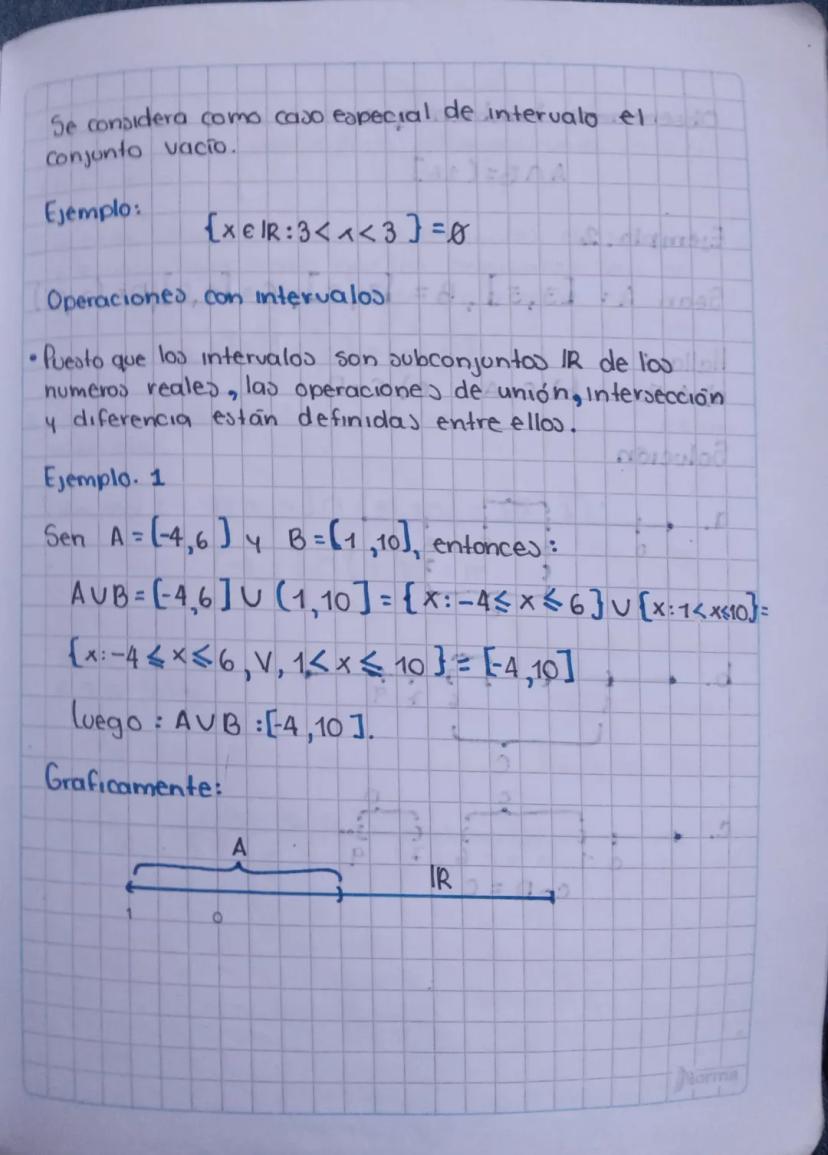 Se considera como caso especial de intervalo el
conjunto vacío.
Ejemplo:
{x ∈ IR : 3 < x < 3 } = ∅
Operaciones con intervalos
• Puesto que los intervalos son subconjuntos IR de los
numeros reales, las operaciones de unión, intersección
y diferencia están definidas entre ellos.
Ejemplo. 1
Sen A = [-4,6] y B = [1,10], entonces:
A ∪ B = [-4,6] ∪ (1,10] = {x: -4 ≤ x ≤ 6} ∪ {x: 1 < x ≤ 10} =
{x: -4 ≤ x ≤ 6, V, 1 < x ≤ 10 } = [-4,10]
luego : A ∪ B : [-4,10].
Graficamente:
A
IR
1 0
Norma